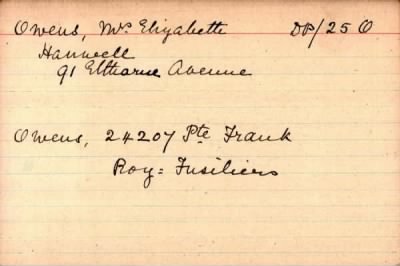 Owens, Mrs Elizabeth DP/25 O
Hanwell
91 Elthorne Avenue
Owens, 24207 Pte Frank
Roy: Fusiliers